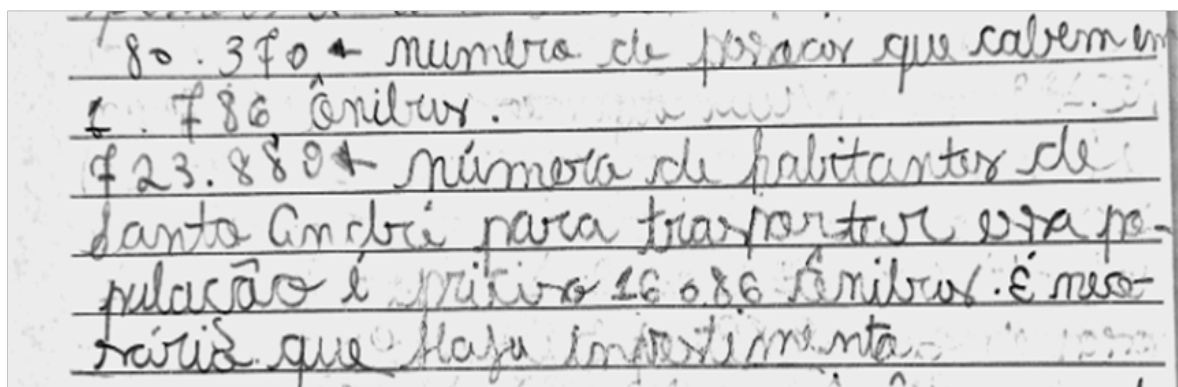 80.370 ← numero de pessoas que cabem em
1.786 Ônibus.
723.889 ← número de habitantes de
Santo André para trasportar essa po-
pulação é priciso 16086 Ônibus. É nes-
sário que Haja investimento.